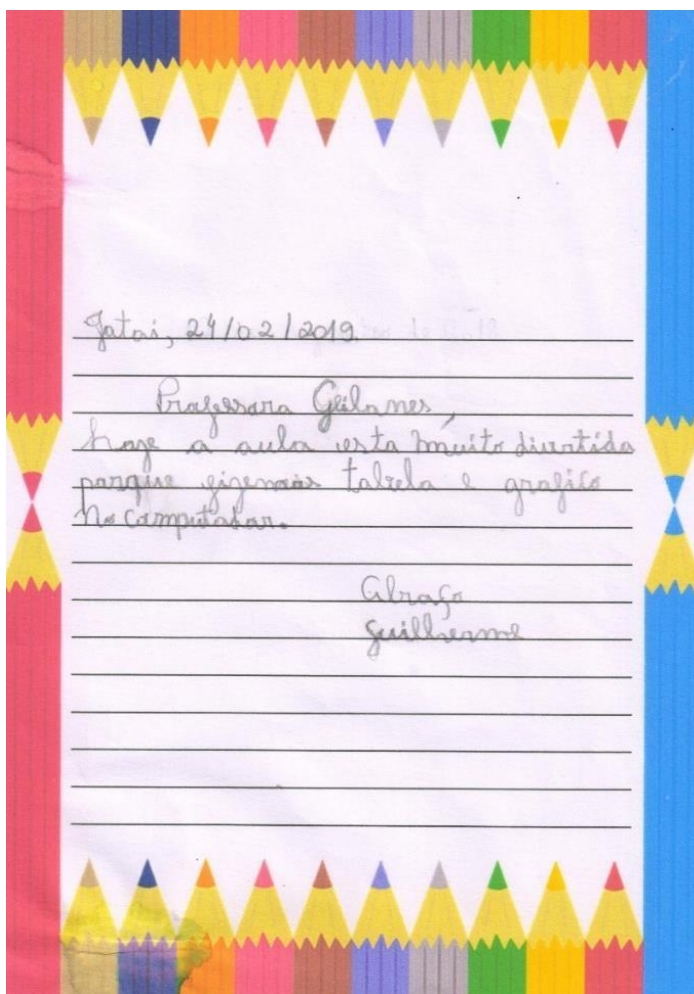 Jatai, 24/02/2019.
Professora Geilanes,
hoje a aula esta muito divertida
porque fizemos tabela e grafico
no computador.
Abraço
Guilherme